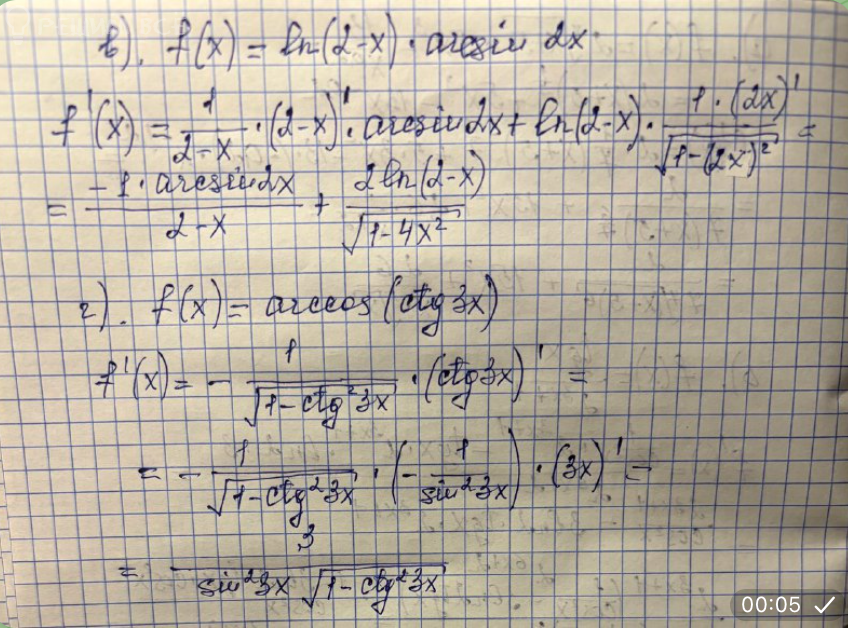 в). f(x) = ln(2-x) · arcsin 2x
f'(x) = 1/(2-x) · (2-x)' · arcsin 2x + ln(2-x) · (1 · (2x)')/√(1-(2x)²) =
= (-1 · arcsin 2x)/(2-x) + (2ln(2-x))/√(1-4x²)
г). f(x) = arccos (ctg 3x)
f'(x) = - 1/√(1-ctg²3x) · (ctg 3x)' =
= - 1/√(1-ctg²3x) · (- 1/sin²3x) · (3x)' =
= 3/(sin²3x √(1-ctg²3x))
00:05